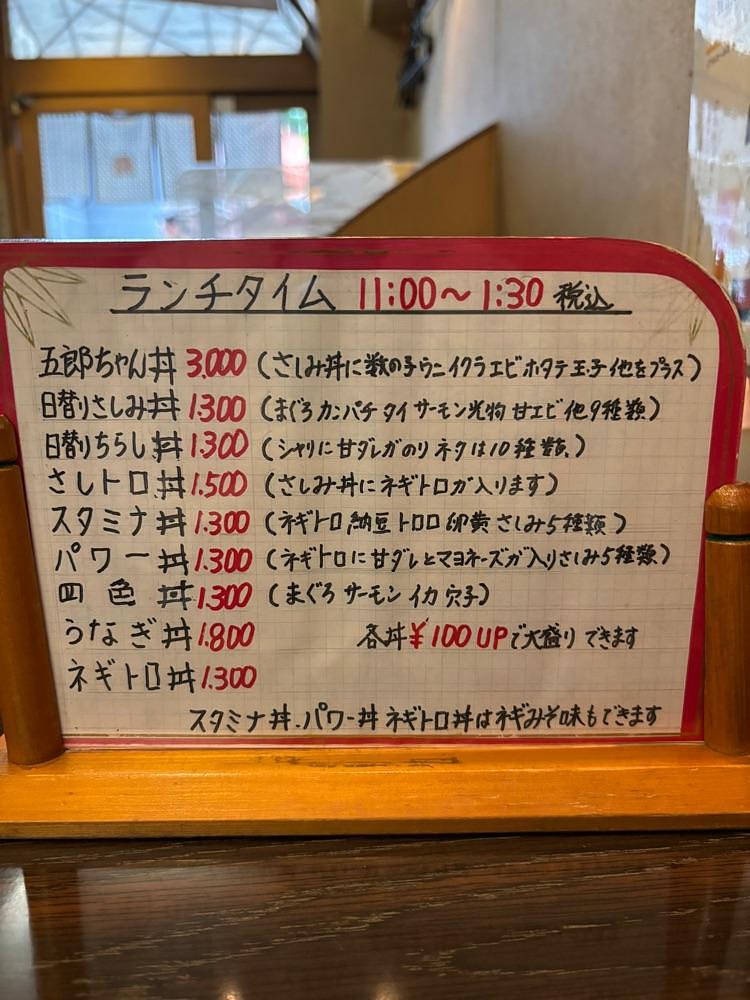 ランチタイム 11:00〜1:30 税込
五郎ちゃん丼 3.000 (さしみ丼に数の子ウニイクラエビホタテ玉子他をプラス)
日替りさしみ丼 1.300 (まぐろカンパチタイサーモン光物甘エビ他9種類)
日替りちらし丼 1.300 (シャリに甘ダレガのりネタは10種類、)
さしトロ丼 1.500 (さしみ丼にネギトロが入ります)
スタミナ丼 1.300 (ネギトロ納豆トロロ卵黄さしみ5種類)
パワー丼 1.300 (ネギトロに甘ダレとマヨネーズが入りさしみ5種類)
四色丼 1.300 (まぐろサーモンイカ穴子)
うなぎ丼 1.800 各丼¥100UPで大盛りできます
ネギトロ丼 1.300
スタミナ丼、パワー丼ネギトロ丼はネギみそ味もできます